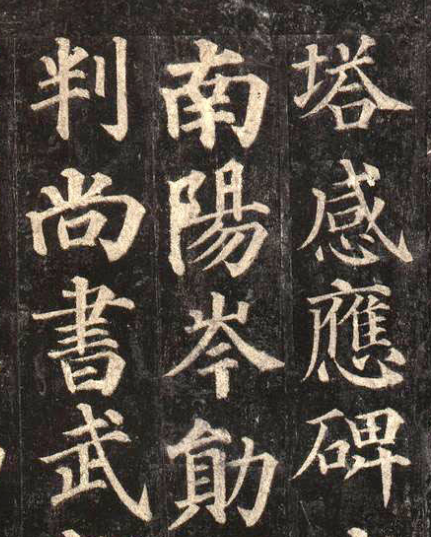 塔感應碑
南陽岑勛
判尚書武